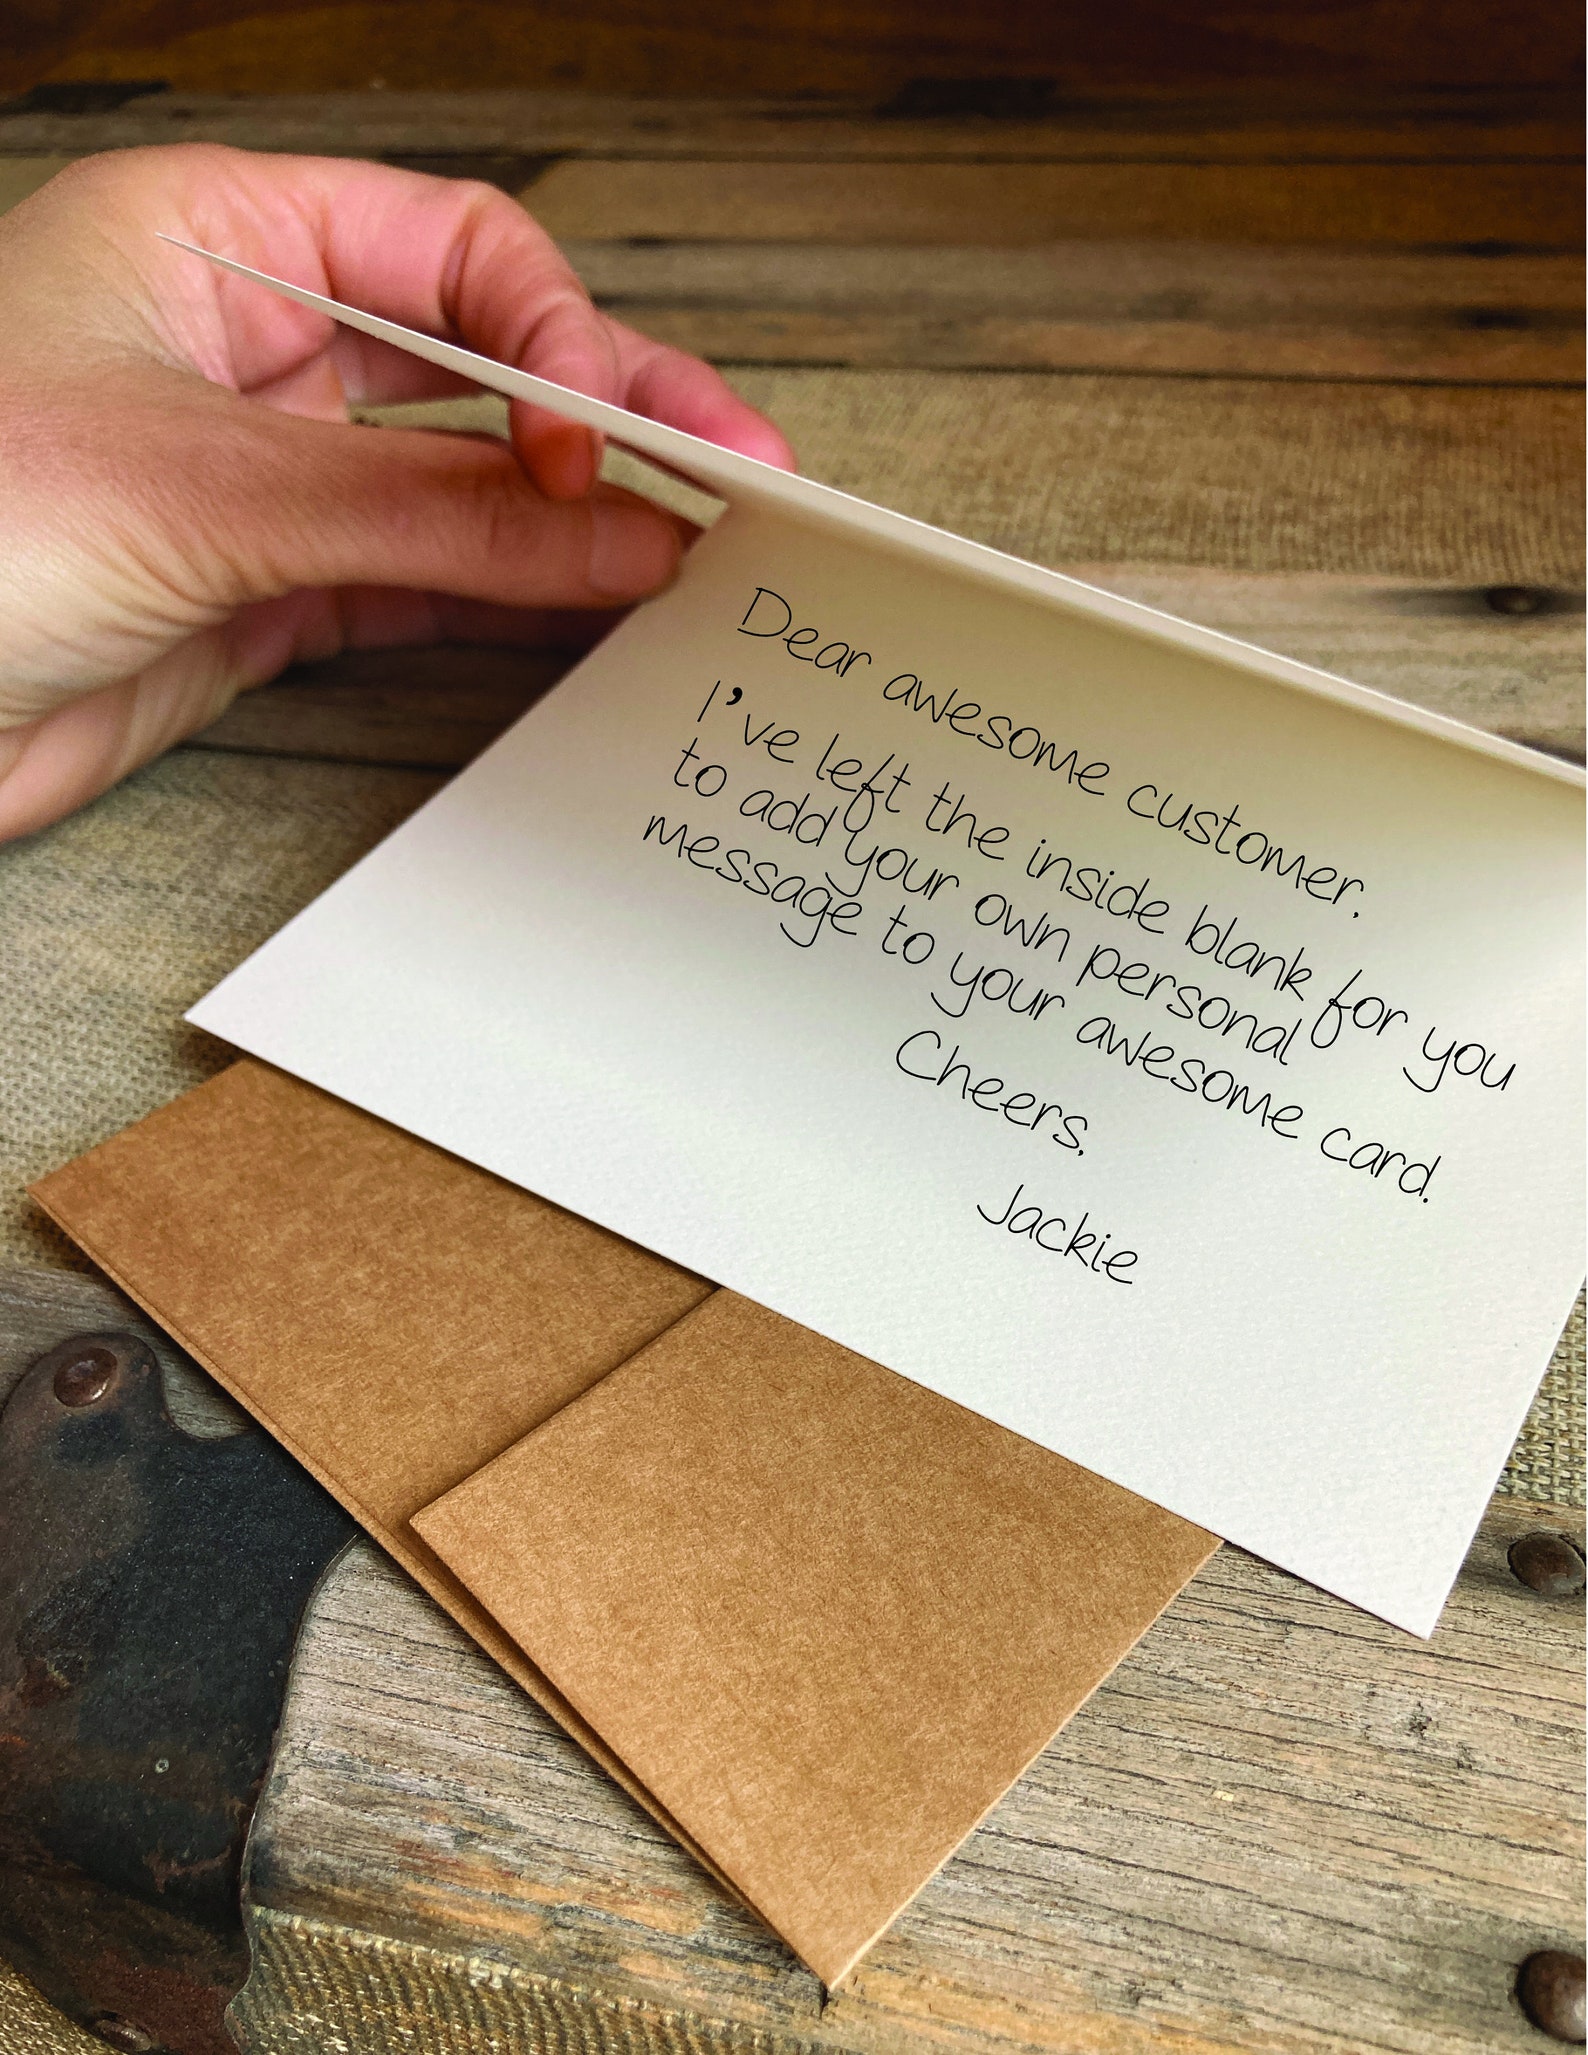 Dear awesome customer,
I've left the inside blank for you
to add your own personal
message to your awesome card.
Cheers,
Jackie